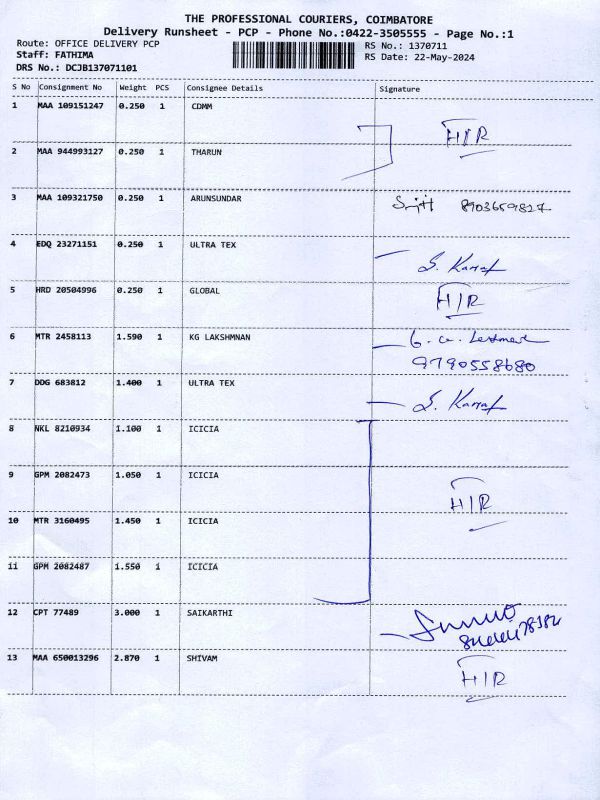 THE PROFESSIONAL COURIERS, COIMBATORE
Delivery Runsheet - PCP - Phone No.:0422-3505555 - Page No.:1
Route: OFFICE DELIVERY PCP RS No.: 1370711
Staff: FATHIMA RS Date: 22-May-2024
DRS No.: DCJB137071101
S No Consignment No Weight PCS Consignee Details Signature
1 MAA 109151247 0.250 1 CDMM
H/R
2 MAA 944993127 0.250 1 THARUN
3 MAA 109321750 0.250 1 ARUNSUNDAR
8903659827
4 EDQ 23271151 0.250 1 ULTRA TEX
5 HRD 20504996 0.250 1 GLOBAL
H/R
6 MTR 2458113 1.590 1 KG LAKSHMNAN
9790558680
7 DDG 683812 1.400 1 ULTRA TEX
8 NKL 8210934 1.100 1 ICICIA
9 GPM 2082473 1.050 1 ICICIA
H/R
10 MTR 3160495 1.450 1 ICICIA
11 GPM 2082487 1.550 1 ICICIA
12 CPT 77489 3.000 1 SAIKARTHI
13 MAA 650013296 2.870 1 SHIVAM
H/R